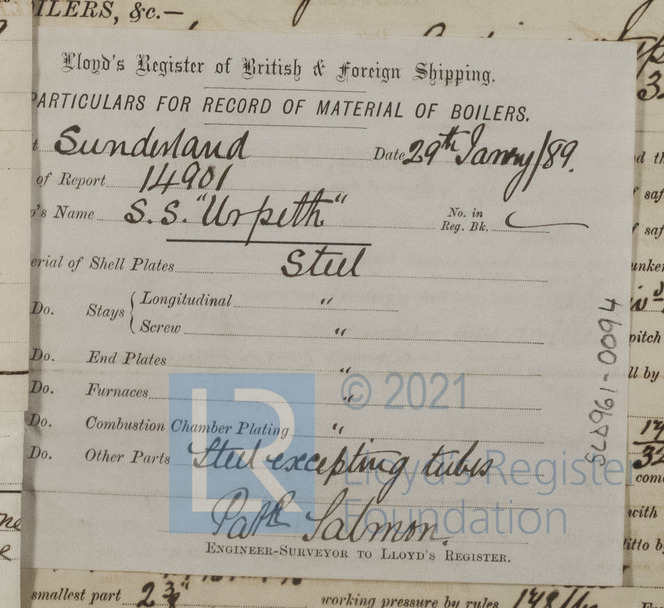 ILERS, &c.—
Lloyd's Register of British & Foreign Shipping.
PARTICULARS FOR RECORD OF MATERIAL OF BOILERS.
t Sunderland Date 29th Janry/89.
of Report 14901
's Name S.S. "Urpeth" No. in Reg. Bk.
erial of Shell Plates Steel
Do. Stays { Longitudinal "
Screw "
Do. End Plates "
Do. Furnaces "
Do. Combustion Chamber Plating "
Do. Other Parts Steel excepting tubes
Patk Salmon.
ENGINEER-SURVEYOR TO LLOYD'S REGISTER.
smallest part 2 3/8" working pressure by rules 148
SLD961-0094
LR
© 2021
Lloyd's Registe
Foundation